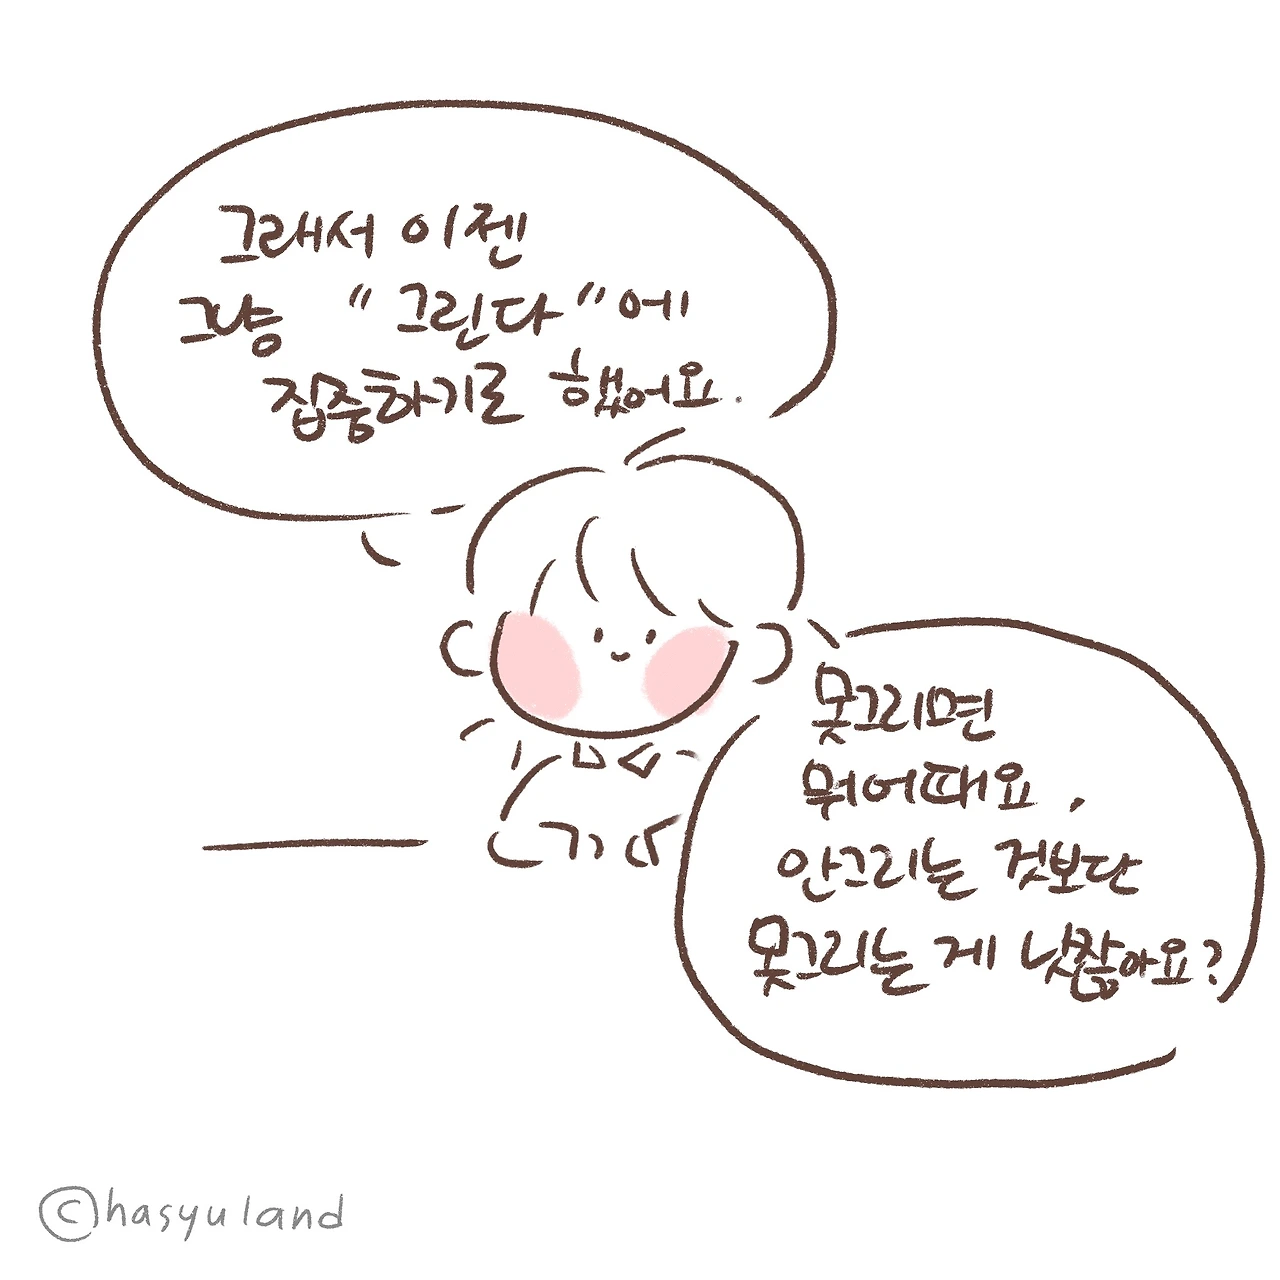 그래서 이젠
그냥 "그린다"에
집중하기로 했어요.
못그리면
뭐어때요,
안그리는 것보단
못그리는 게 낫잖아요?
©hasyuland